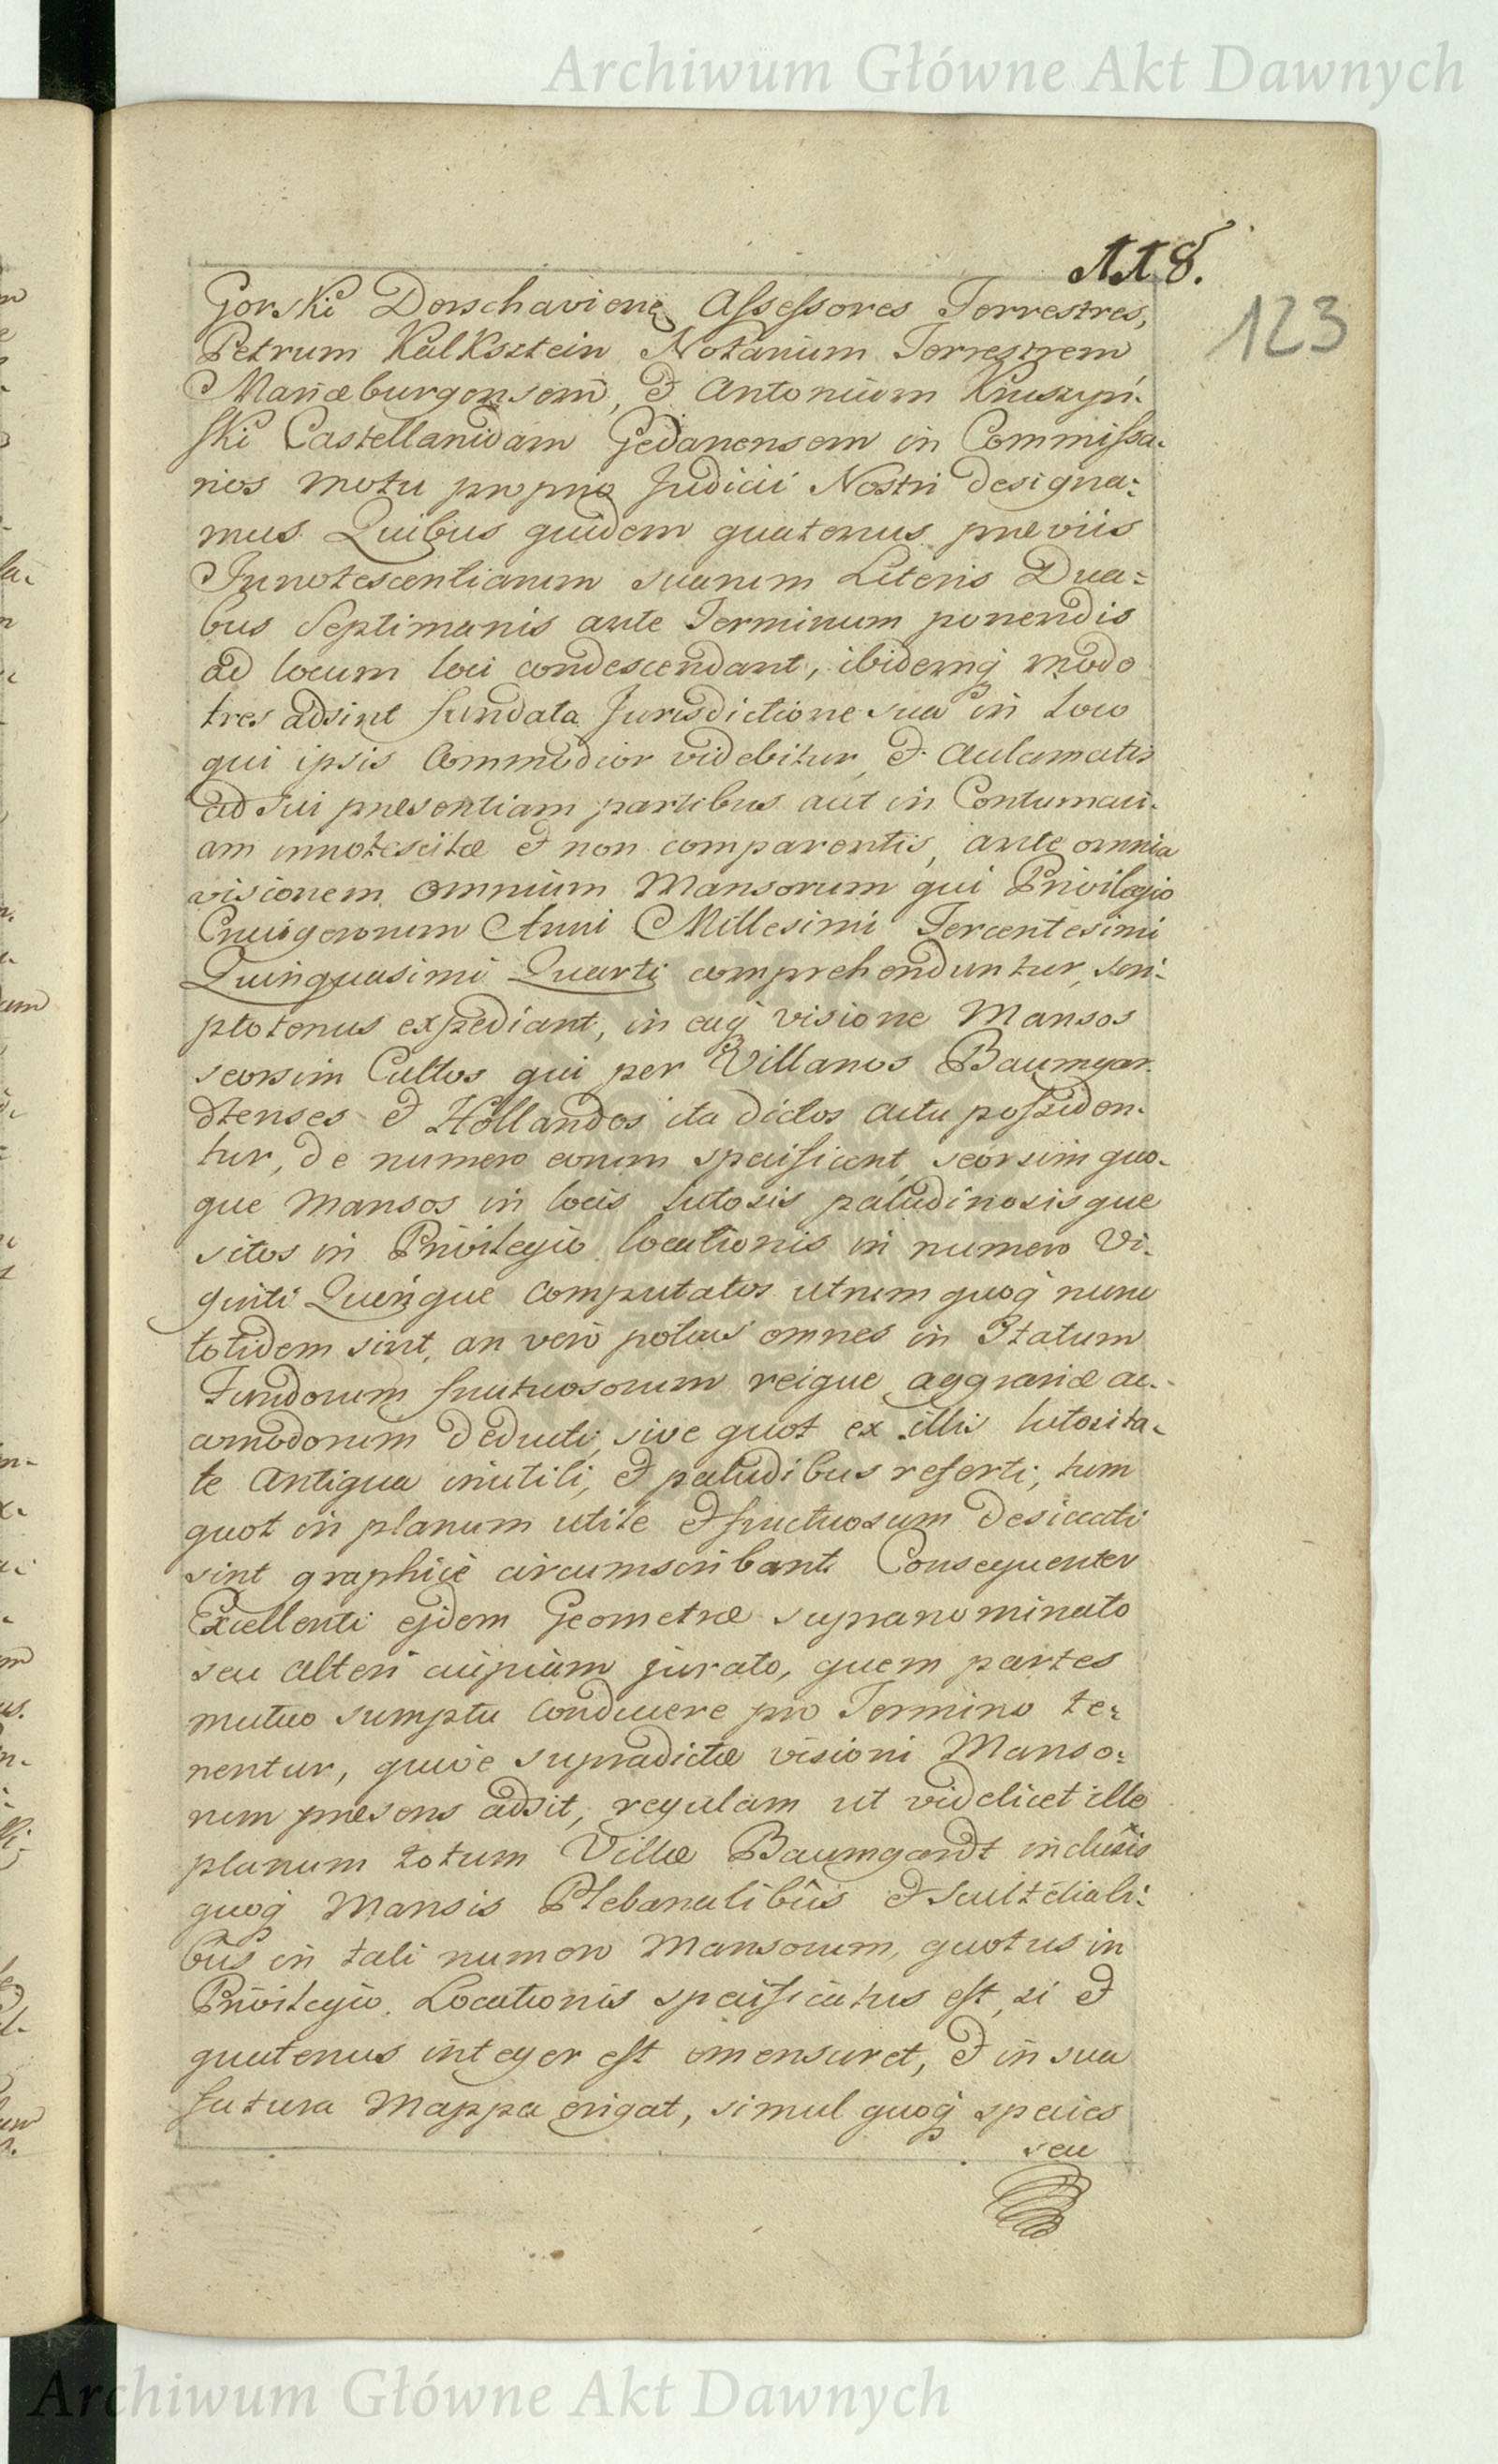 Archiwum Główne Akt Dawnych
118.
123
Gorski Dorschavienẽ Assessores Terrestres,
Petrum Kalksztein Notarium Terrestrem
Mariæburgensem, & Antonium Kruszyń-
ski Castellanidam Gedanensem in Commissa-
rios motu proprio Judicii Nostri designa-
mus. Quibus quidem quatenus præviis
Innotescentiarum suarum Literis Dua=
bus Septimanis ante Terminum ponendis
ad locum loci condescendant, ibidemq modo
tres adsint fundata Jurisdictione sua in loco
qui ipsis Commodior videbitur, & acclamatis
ad sui præsentiam partibus aut in Contumaci-
am innotescitæ & non comparentis, ante omnia
visionem omnium Mansorum qui Privilegio
Crucigerorum Anni Millesimi Tercentesimi
Quinquasimi Quarti comprehenduntur, scri-
ptotenus expediant, in eaq visione Mansos
seorsim Cultos qui per Villanos Baumgar-
dtenses & Hollandos ita dictos actu possiden-
tur, de numero eorum specificent, seorsim quo-
que Mansos in locis lutosis paludinosisque
sitos in Privilegio locationis in numero Vi-
ginti Quinque computatos utrum quoq nunc
totidem sint, an vero potius omnes in Statum
Fundorum fructuosorum reique aggrariæ ac-
comodorum deducti, sive quot ex illis lutosita-
te antiqua inutili, & paludibus referti, tum
quot in planum utile & fructuosum desiccati
sint graphice circumscribant. Consequenter
Excellenti ejdem Geometræ supranominato
seu alteri cuipiam jurato, quem partes
mutuo sumptu conducere pro Termino te-
nentur, quive supradictæ visioni Manso-
rum præsens adsit, regulam ut videlicet ille
planum totum Villæ Baumgardt inclusis
quoq Mansis Plebanalibus & Scultetiali-
bus in tali numero Mansorum, quotus in
Privilegio Locationis specificatus est, si &
quatenus integer est emensuret, & in sua
futura Mappa erigat, simul quoq species
seu
Archiwum Główne Akt Dawnych